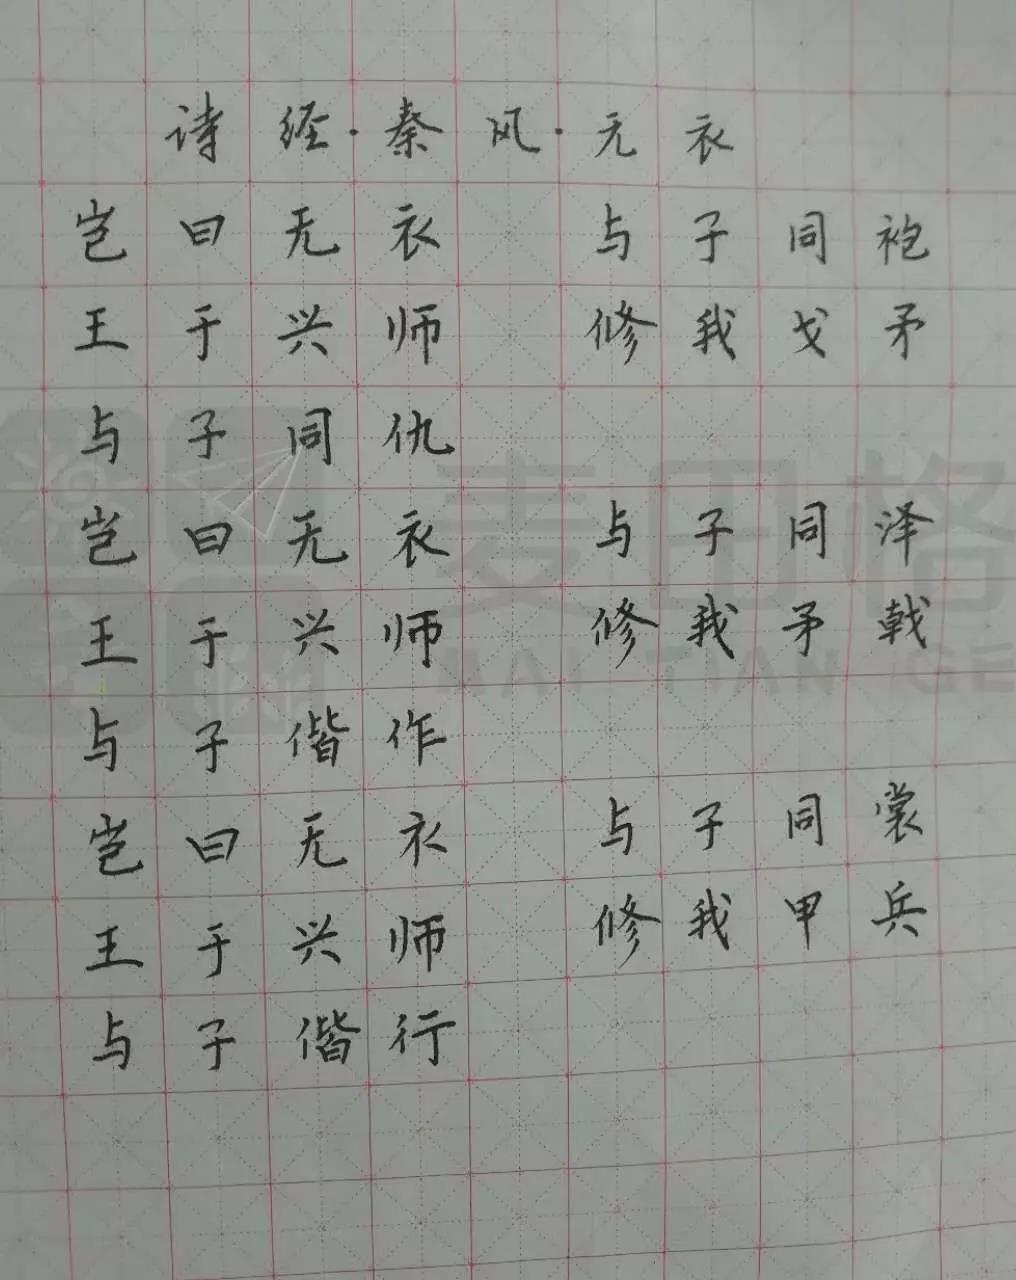 诗经·秦风·无衣
岂曰无衣 与子同袍
王于兴师 修我戈矛
与子同仇
岂曰无衣 与子同泽
王于兴师 修我矛戟
与子偕作
岂曰无衣 与子同裳
王于兴师 修我甲兵
与子偕行
麦田格
MAI TIAN GE